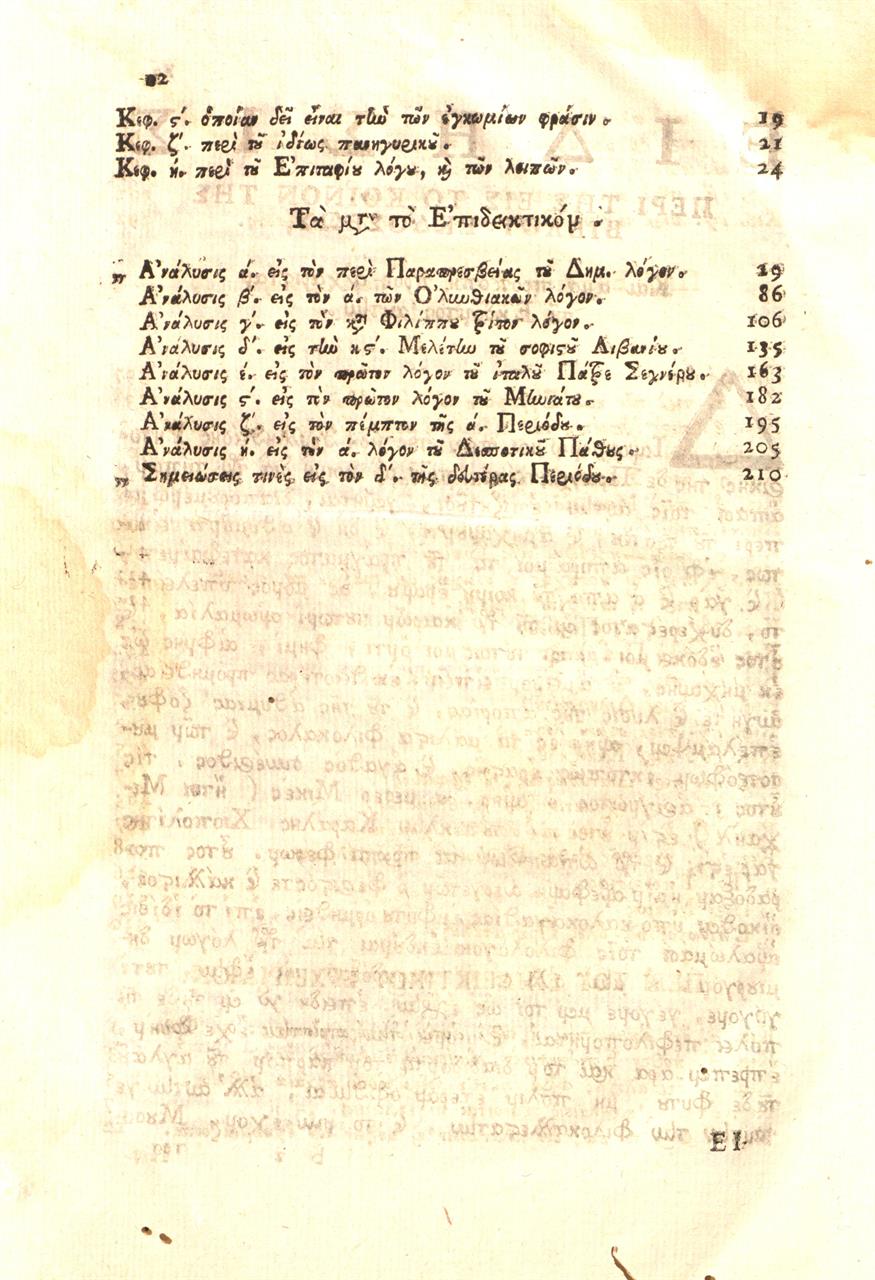 Κεφ. ς΄. ὁποίαν δεῖ εἶναι τὴν τῶν ἐγκωμίων φράσιν. 19
Κεφ. ζ΄. περὶ τοῦ ἰδίως πανηγυρικοῦ. 21
Κεφ. η΄. περὶ τοῦ Ἐπιταφίου λόγου, καὶ τῶν λοιπῶν. 24
Τὰ μετὰ τὸ Ἐπιδεικτικόν.
„ Ἀνάλυσις ά. εἰς τὸν περὶ Παραπρεσβείας τοῦ Δημ. λόγον. 29
Ἀνάλυσις β΄. εἰς τὸν ά. τῶν Ὀλυνθιακῶν λόγον. 86
Ἀνάλυσις γ΄. εἰς τὸν κατὰ Φιλίππου τρίτον λόγον. 106
Ἀνάλυσις δ΄. εἰς τὴν κς΄. Μελέτην τοῦ σοφιστοῦ Λιβανίου. 135
Ἀνάλυσις έ. εἰς τὸν πρῶτον λόγον τοῦ ἰταλοῦ Πάτρε Σεγνέρου. 163
Ἀνάλυσις ς΄. εἰς τὸν πρῶτον λόγον τοῦ Μινιάτου. 182
Ἀνάλυσις ζ΄. εἰς τὸν πέμπτον τῆς ά. Περιόδου. 195
Ἀνάλυσις ή. εἰς τὸν ά. λόγον τοῦ Δεσποτικοῦ Πάθους. 205
„ Σημειώσεις τινὲς εἰς τὸν δ΄. τῆς δευτέρας Περιόδου. 210
ΕΙ-